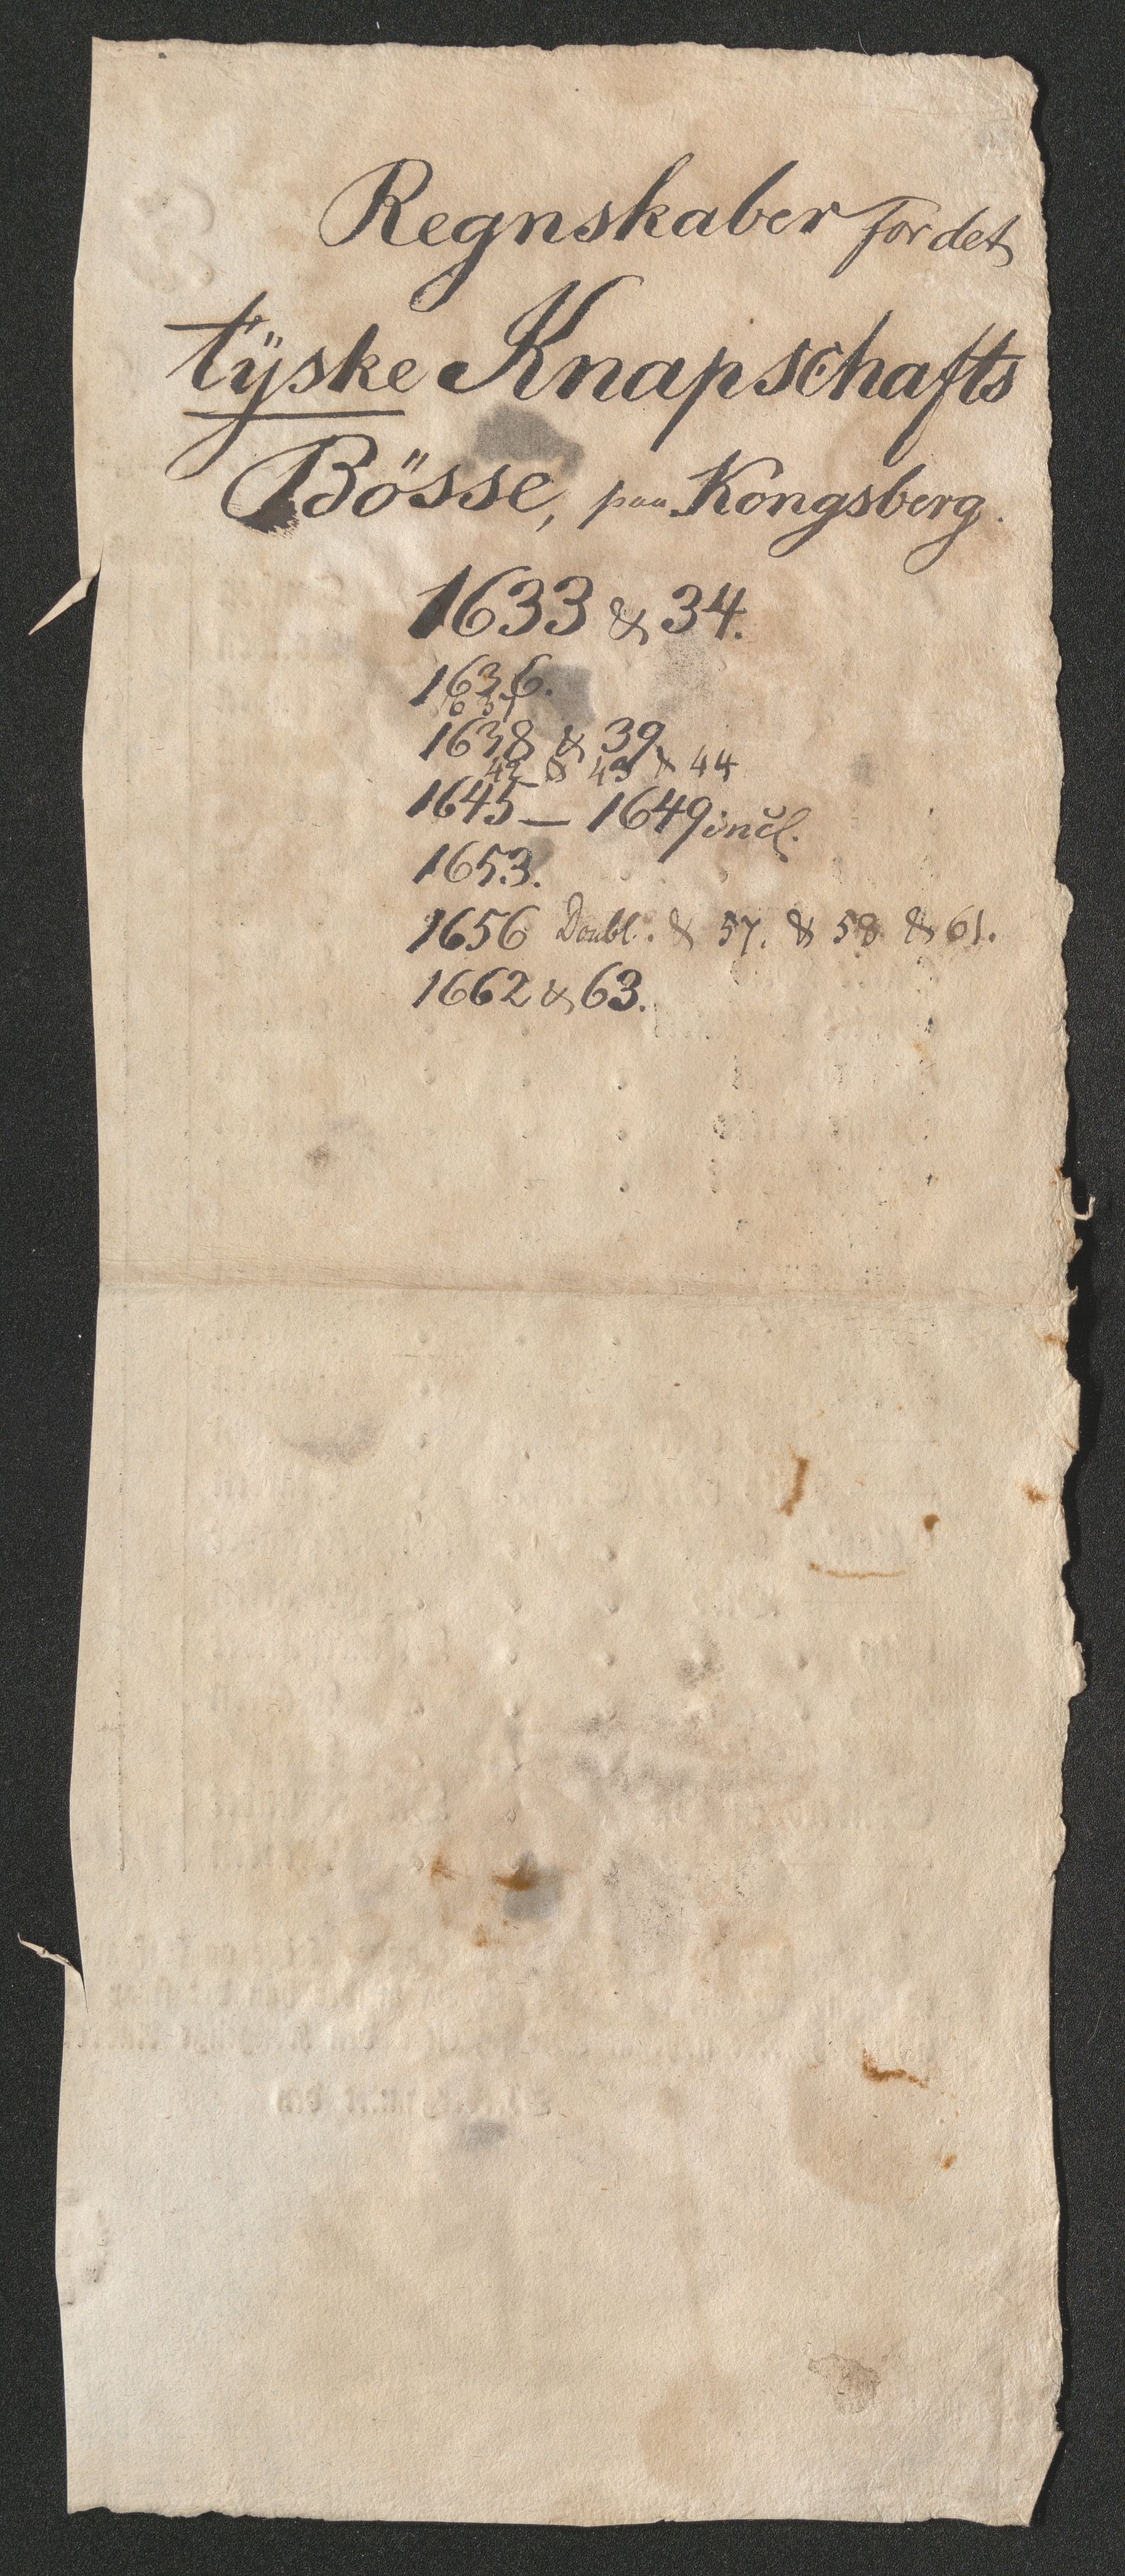 Regnskaber for det
tÿske Knapschafts
Bösse, paa Kongsberg.
1633 & 34.
1636.
637
1638 & 39
42 & 43 & 44
1645 — 1649 incl.
1653.
1656 Doubl. & 57. & 58 & 61.
1662 & 63.